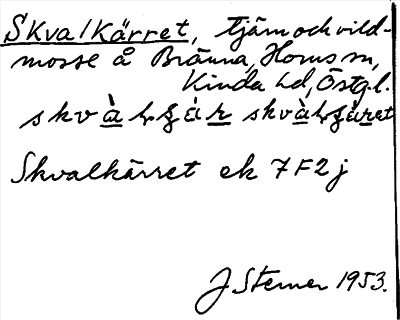 Skvalkärret, tjärn och vild-
mosse å Bränna, Horns sn,
Kinda hd, Östg.l.
Skvalkärret ek 7F2j
J Sterner 1953.